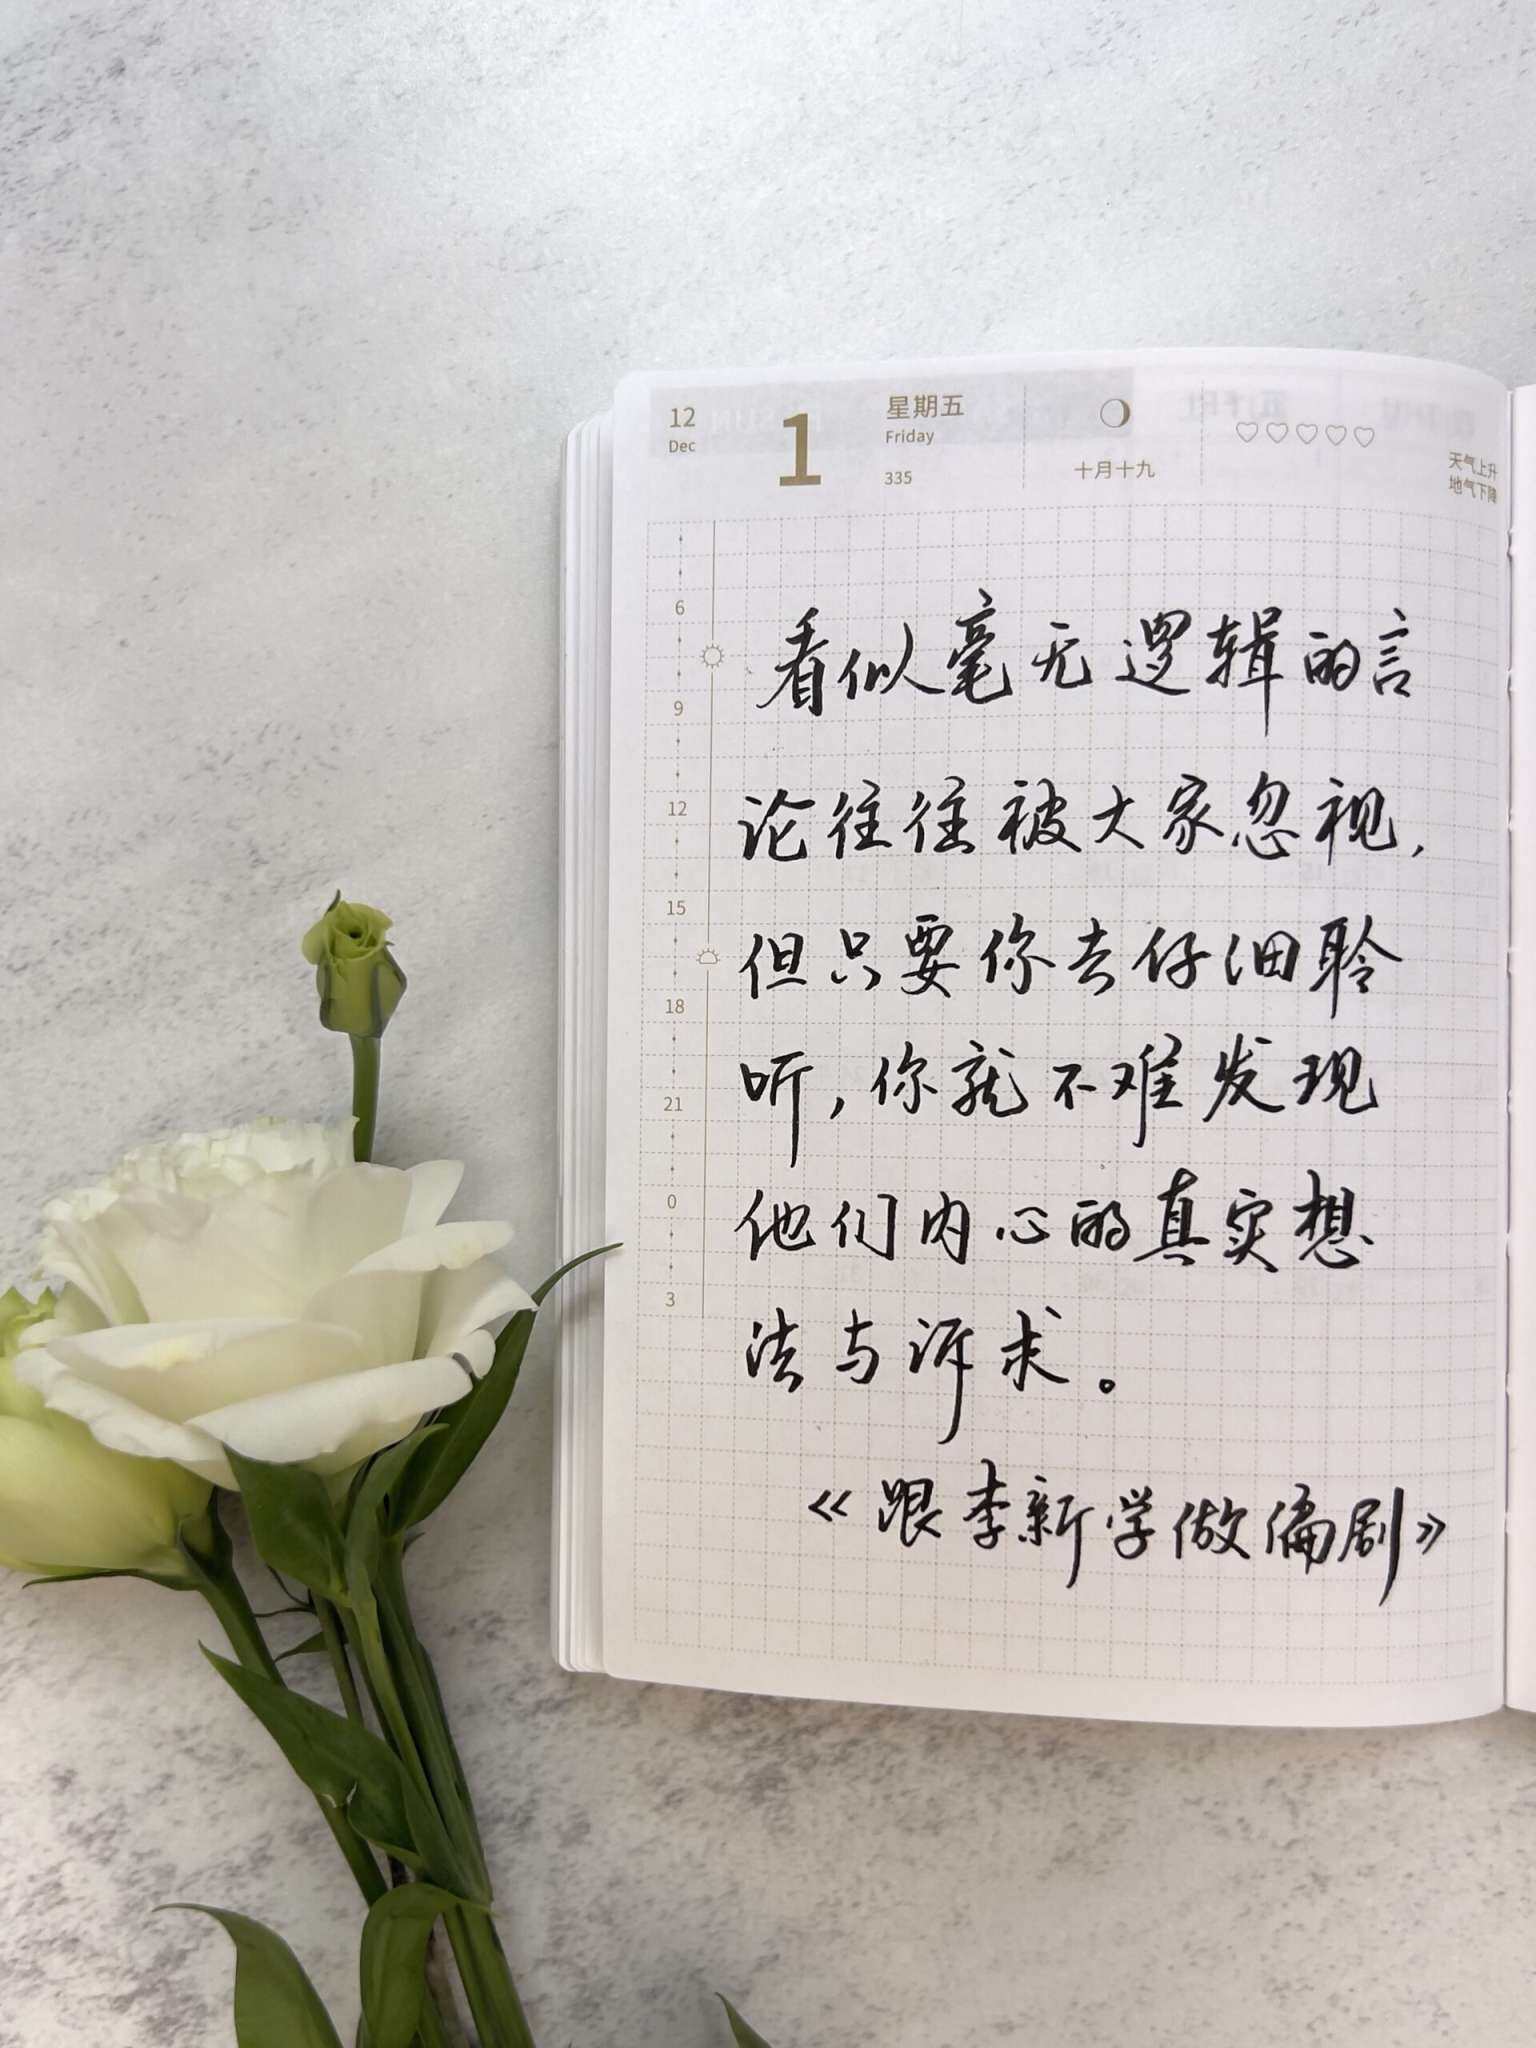 12
Dec
1
星期五
Friday
335
十月十九
天气上升
地气下降
6
9
12
15
18
21
0
3
看似毫无逻辑的言
论往往被大家忽视,
但只要你去仔细聆
听,你就不难发现
他们内心的真实想
法与诉求。
《跟李新学做编剧》